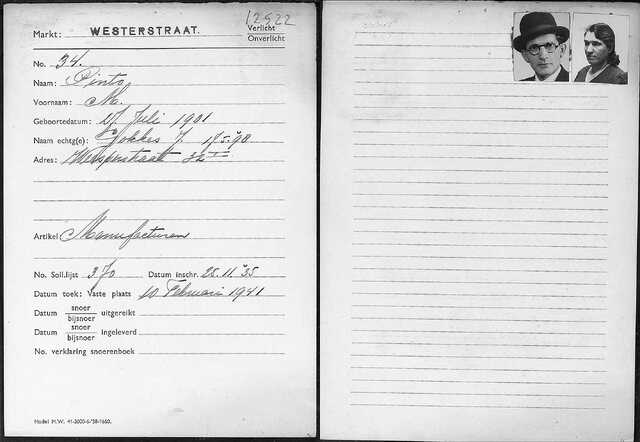 12522
Markt: WESTERSTRAAT.
Verlicht
Onverlicht
No. 34.
Naam: Pinto
Voornaam: M.
Geboortedatum: 17 Juli 1901
Naam echtg(e): Jokkes J. 17.5.98
Adres: Weesperstraat 32 I
Artikel Manufacturen
No. Soll.lijst 370 Datum inschr. 28.11.'35
Datum toek: Vaste plaats 10 Februari 1941
Datum snoer
bijsnoer uitgereikt
Datum snoer
bijsnoer Ingeleverd
No. verklaring snoerenboek
Model M.W. 41-3000-6/'38-1660.